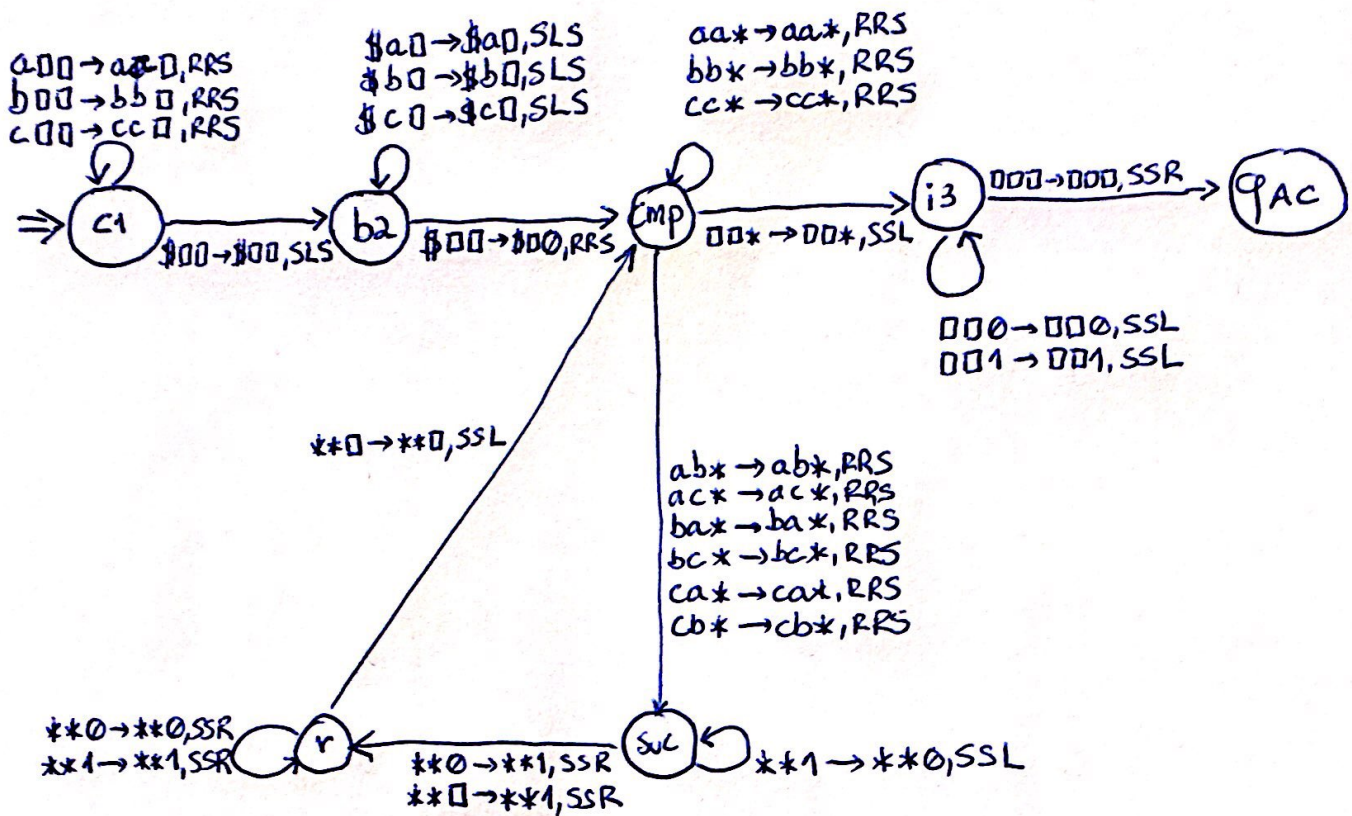 a□□→aa□,RRS
b□□→bb□,RRS
c□□→cc□,RRS
$a□→$a□,SLS
$b□→$b□,SLS
$c□→$c□,SLS
aa*→aa*,RRS
bb*→bb*,RRS
cc*→cc*,RRS
c1
$□□→$□□,SLS
b2
$□□→$□0,RRS
cmp
□□*→□□*,SSL
i3
□□□→□□□,SSR
qAC
□□0→□□0,SSL
□□1→□□1,SSL
**□→**□,SSL
ab*→ab*,RRS
ac*→ac*,RRS
ba*→ba*,RRS
bc*→bc*,RRS
ca*→ca*,RRS
cb*→cb*,RRS
**0→**0,SSR
**1→**1,SSR
r
**0→**1,SSR
**□→**1,SSR
suc
**1→**0,SSL